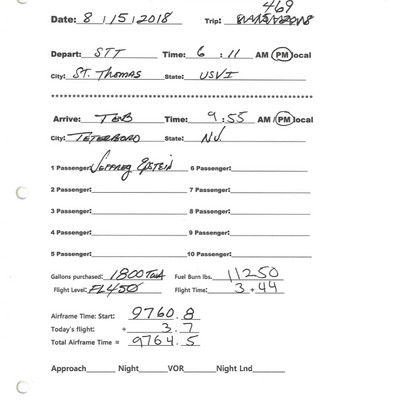 469
Date: 8/15/2018 Trip:
Depart: STT Time: 6:11 AM / PM local
City: ST. THOMAS State: USVI
Arrive: TEB Time: 9:55 AM / PM local
City: TETERBORO State: NJ.
1 Passenger: JEFFREY EPSTEIN 6 Passenger:
2 Passenger: 7 Passenger:
3 Passenger: 8 Passenger:
4 Passenger: 9 Passenger:
5 Passenger: 10 Passenger:
Gallons purchased: 1800 Fuel Burn lbs. 11250
Flight Level: FL450 Flight Time: 3 + 44
Airframe Time: Start: 9760.8
Today's flight: + 3.7
Total Airframe Time = 9764.5
Approach Night VOR Night Lnd